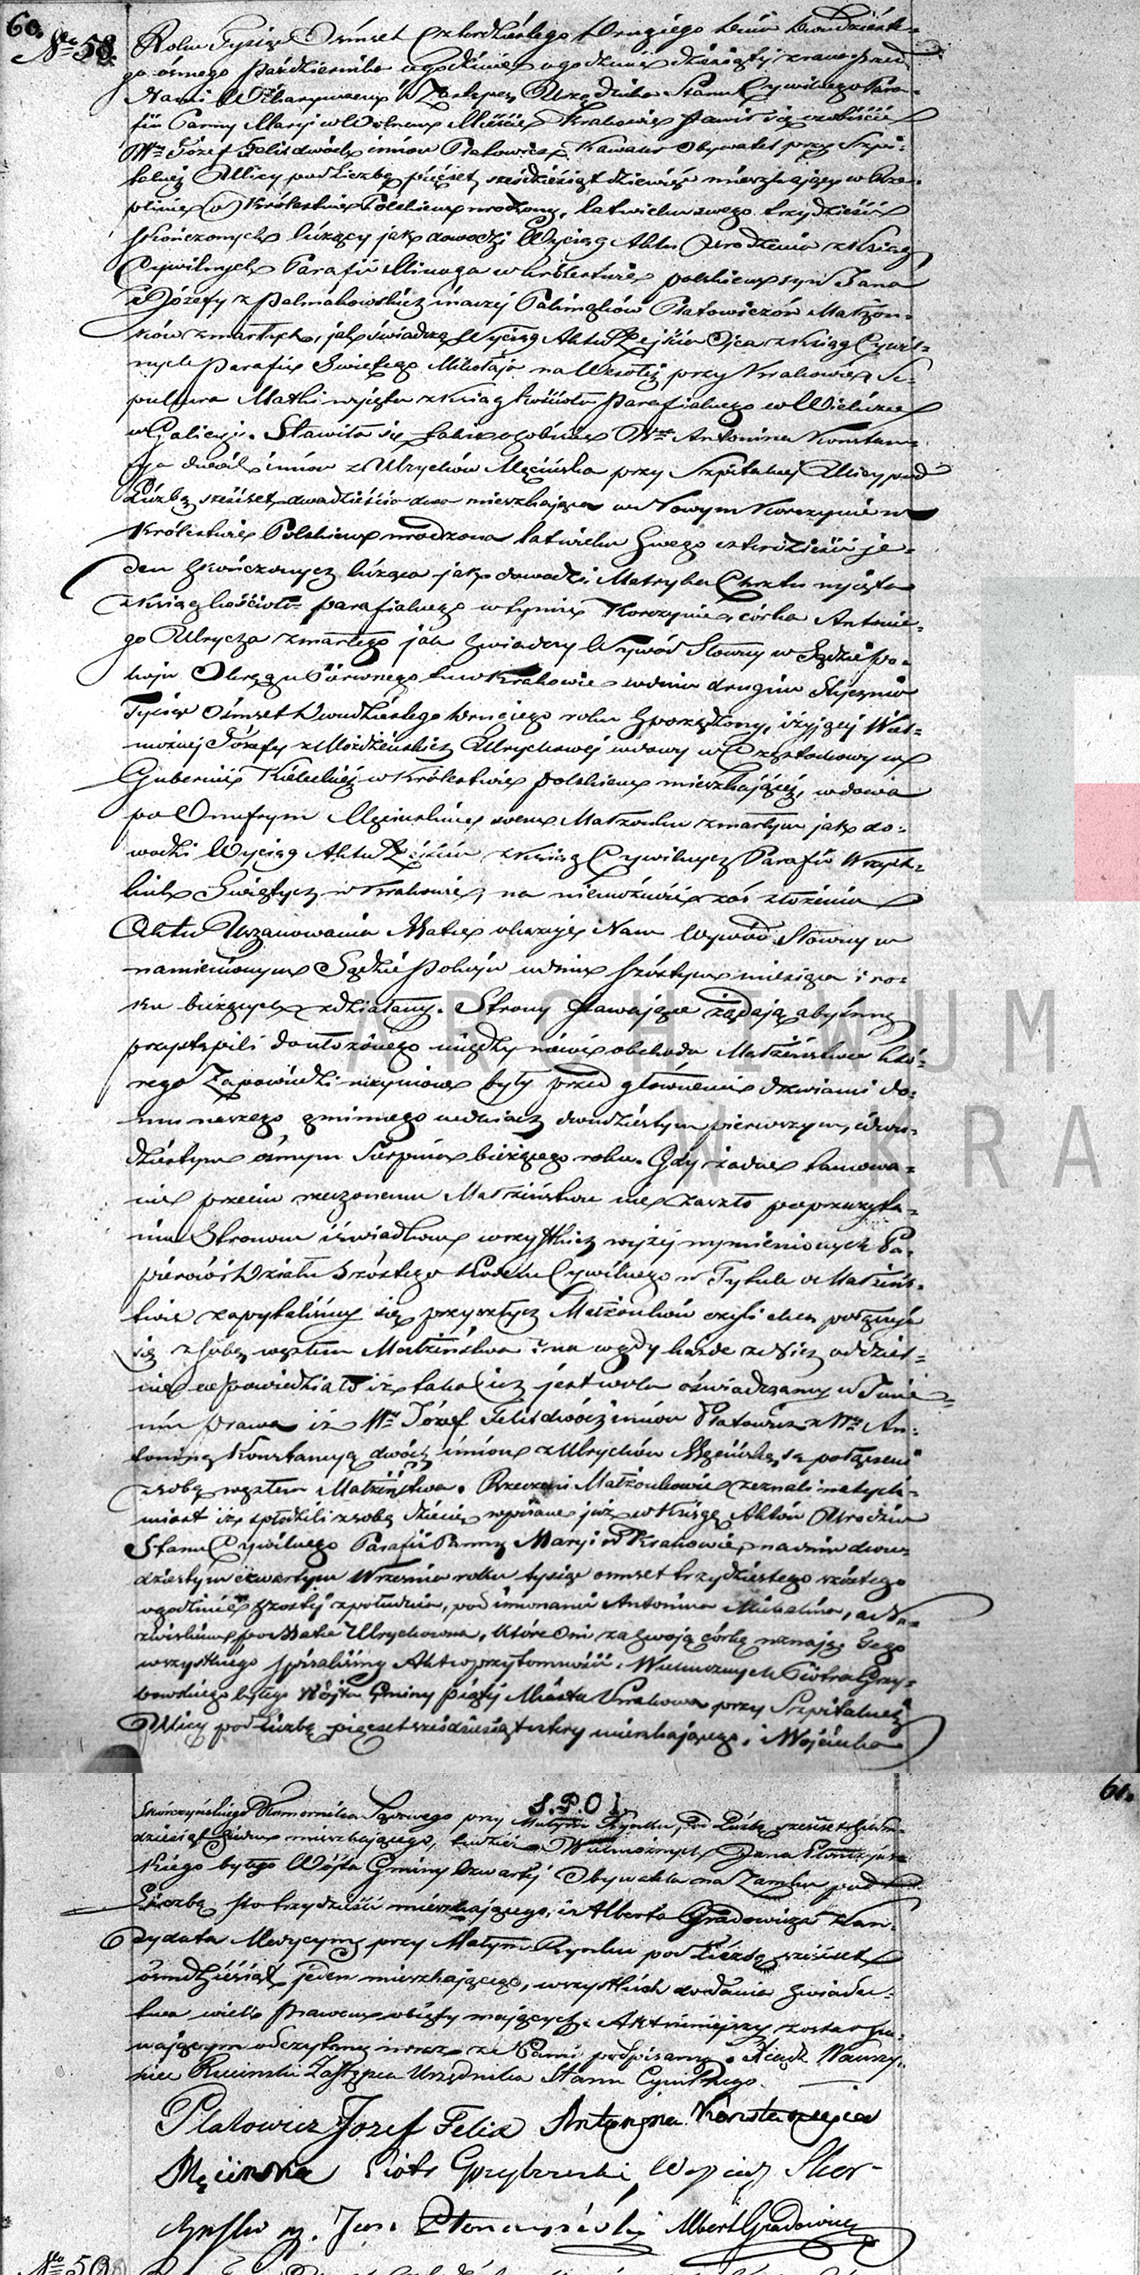 60.
Nro 58.
Roku Tysiąc Ośmset Czterdziestego Drugiego dnia dwudzieste-
go ośmego Października o godzinie dziesiątéj zrana przed
Nami Wikaryuszem i Zastępcą Urzędnika Stanu Cywilnego Para-
fii Panny Maryi w Wolnem Mieście Krakowie stawił się osobiście
Wny Józef Felix dwóch imion Płatowicz, Kawaler Obywatel przy Szpi-
talnéj Ulicy pod Liczbą pięćset sześćdziesiąt dziewięć mieszkający w
w Królestwie Polskiem urodzony, lat wieku swego trzydzieści
skończonych liczący jak dowodzi Wyciąg Aktu Urodzenia z Ksiąg
Cywilnych Parafii Minoga w Królestwie polskiem syn Jana
i Józefy z Małżon-
ków zmarłych, jak świadczą Wyciąg Aktu Zejścia Ojca z Ksiąg Cywil-
nych Parafii Świętego Mikołaja na Wesołéj przy Krakowie, Se-
pultura Matki wyjęta z Ksiąg Kościoła parafialnego w Wieliczce
w Galicyi. Stawiła się także osobiście Wna Antonina Konstan-
cya dwóch imion z Ulrychów Męcińska przy Szpitalnéj Ulicy pod
Liczbą sześćset dwadzieścia dwa mieszkająca w Nowym Korczynie w
Królestwie Polskiem urodzona lat wieku swego czterdzieści je-
den skończonych licząca jak dowodzi Metryka Chrztu wyjęta
z Ksiąg kościoła parafialnego w tymże Korczynie, córka Antonie-
go Ulrycha zmarłego jak świadczy Wywód Słowny w Sądzie Po-
koju Okręgu w Krakowie w dniu drugim Stycznia
Tysiąc Ośmset Dwudziestego Drugiego roku sporządzony, i żyjącej Wiel-
możnéj Józefy z Ulrychowéj wdowy w Częstochowy w
Gubernii Kieleckiéj w Królestwie polskiem mieszkającéj, wdowa
po Onufrym Męcińskim swem Małżonku zmarłym jak do-
wodzi Wyciąg Aktu Zejścia z Ksiąg Cywilnych Parafii Wszyst-
kich Świętych w Krakowie, na niemożność zaś złożenia
Aktu Uszanowania Matce okazuje Nam Wywód Słowny w
namienionym Sądzie Pokoju w dniu szóstym miesiąca i ro-
ku bieżących zdziałany. Strony stawające żądają abyśmy
przystąpili do ułożonego między niemi obchodu Małżeństwa któ-
rego Zapowiedzi uczynione były przed głównemi drzwiami do-
mu naszego gminnego w dniach dwudziestym pierwszym, i dwu-
dziestym ósmym Sierpnia bieżącego roku. Gdy żadne tamowa-
nie przeciw rzeczonemu Małżeństwu nie zaszło po przeczyta-
niu Stronom i świadkom wszystkich wyżéj wymienionych Pa-
pierów i Działu Szóstego Kodexu Cywilnego w Tytule o Małżeńs-
twie zapytaliśmy się przyszłych Małżonków czyli chcą połączyć
się z sobą węzłem Małżeństwa? na co gdy każde z Nich oddziel-
nie odpowiedziało iż taka ich jest wola oświadczamy w Imie-
niu prawa iż Wny Józef Felix dwóch imion Płatowicz z Wną An-
toniną Konstancyą dwóch imion z Ulrychów Męcińską są połączeni
z sobą węzłem Małżeństwa. Rzeczeni Małżonkowie zeznali natych-
miast iż spłodzili z sobą dziecię wpisane już w Księgę Aktów Urodzin
Stanu Cywilnego Parafii Panny Maryi w Krakowie, na dniu dwu-
dziestym czwartym Września roku tysiąc ośmset trzydziestego szóstego
o godzinie szóstéj z południa, pod imionami Antonina Michalina, a Na-
zwiskiem po Matce Ulrychowna, które Oni za swoją córkę uznają. Czego
wszystkiego spisaliśmy Akt w przytomności: Wielmożnych Piotra Grzy-
bowskiego byłego Wójta Gminy piątéj Miasta Krakowa przy Szpitalnéj
Ulicy pod Liczbą pięćset sześćdziesiąt cztery mieszkającego, i Wojciecha
61.
S.P.O.
Skórczyńskiego Komornika Sądowego przy Małym Rynku pod Liczbą sześćset
dziesiąt mieszkającego, tudzież Wielmożnych Jana
skiego byłego Wójta Gminy Czwartéj Obywatela na Zamku pod
Liczbą sto trzydzieści mieszkającego, i Alberta Gradowicza Kan-
dydata Medycyny przy Małym Rynku pod Liczbą sześćset
ośmdziesiąt jeden mieszkającego, wszystkich do dania świadec-
twa wiek Prawem objęty mających. Akt niniejszy został sta-
wającym odczytany i wraz ze Mami podpisany. Xiądz Wawrzy-
niec Zastępca Urzędnika Stanu Cywilnego.
Płatowicz Jozef Felix Antonina Konstancyja
Męcinska Piotr Grzybowski, Wojciech Skor-
czyński Jan Albert Gradowicz
Nro 59
ARCHIWUM
W KRA